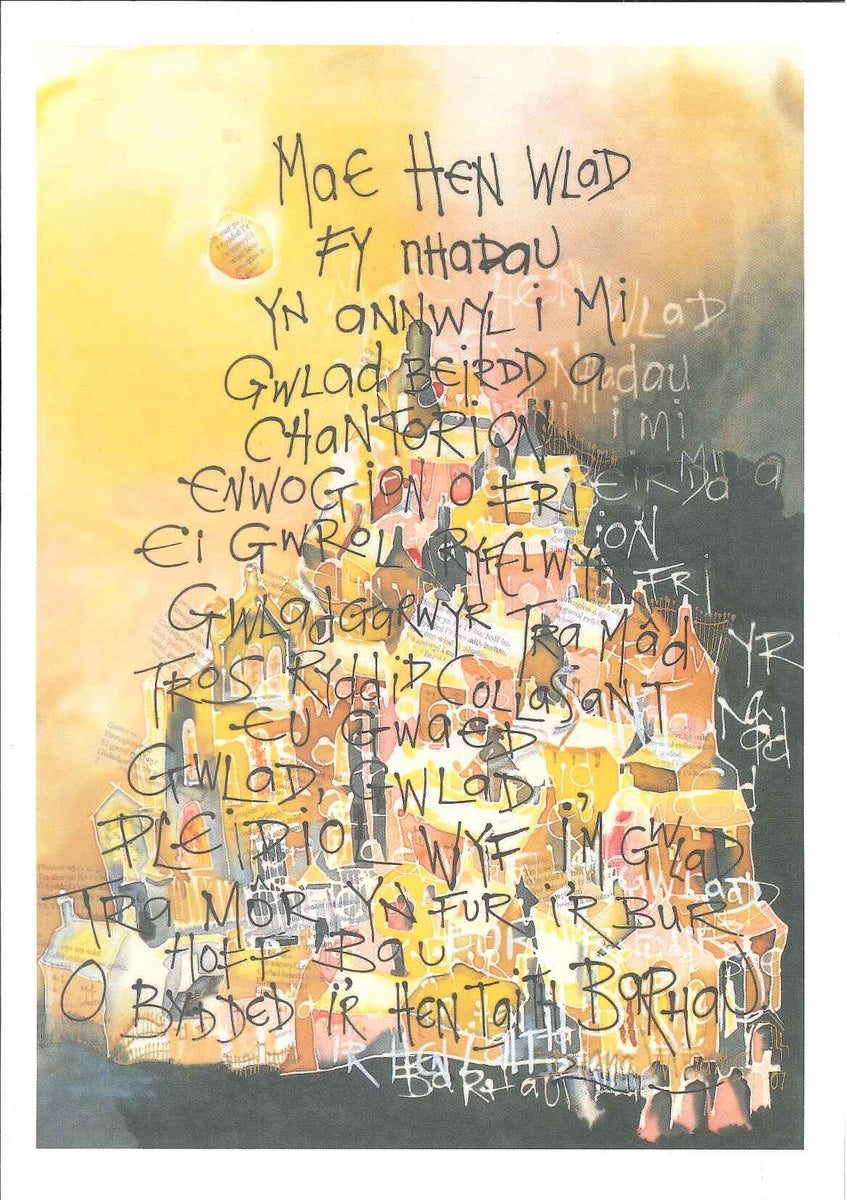 Mae Hen Wlad
Fy nhadau
Yn annwyl i mi
Gwlad beirdd a
Chantorion
Enwogion o fri
Ei Gwrol Ryfelwyr
Gwladgarwyr Tra Mâd
Tros Ryddid Collasant
Eu Gwaed
Gwlad, Gwlad,
Pleidiol wyf i'm Gwlad
Tra Môr yn fur i'r bur
Hoff Bau
O Bydded i'r Hen Iaith Barhau
Hen Wlad
Nhadau
i mi
eirdd a
ion
Fri
Yr
Mâd
Gwlaad
ir Hen Iaith
Barhau